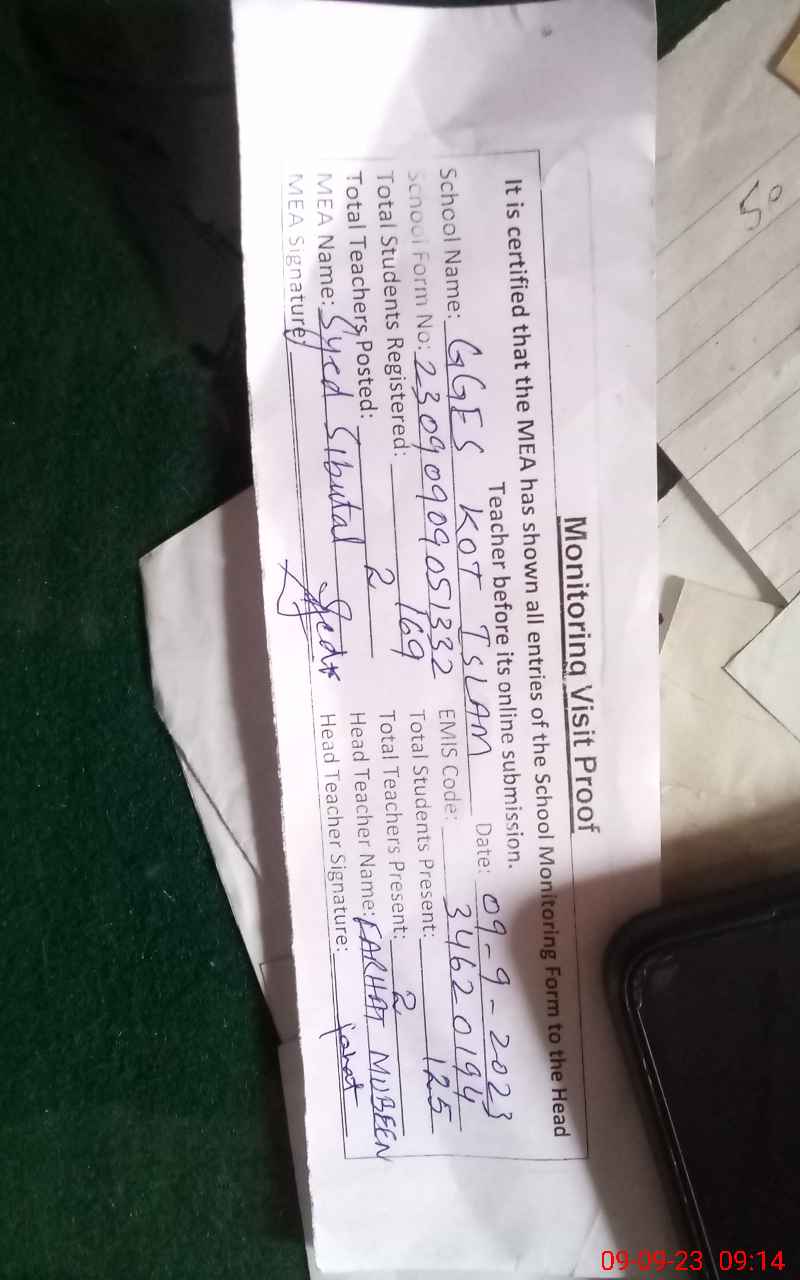 Monitoring Visit Proof
It is certified that the MEA has shown all entries of the School Monitoring Form to the Head
Teacher before its online submission.
School Name: GGES KOT ISLAM Date: 09-9-2023
School Form No: 23090909051332 EMIS Code: 34620194
Total Students Registered: 169 Total Students Present: 125
Total Teachers Posted: 2 Total Teachers Present: 2
MEA Name: Syed Sibutal Head Teacher Name: FARHAT MUBEEN
MEA Signature: Head Teacher Signature:
09-09-23 09:14